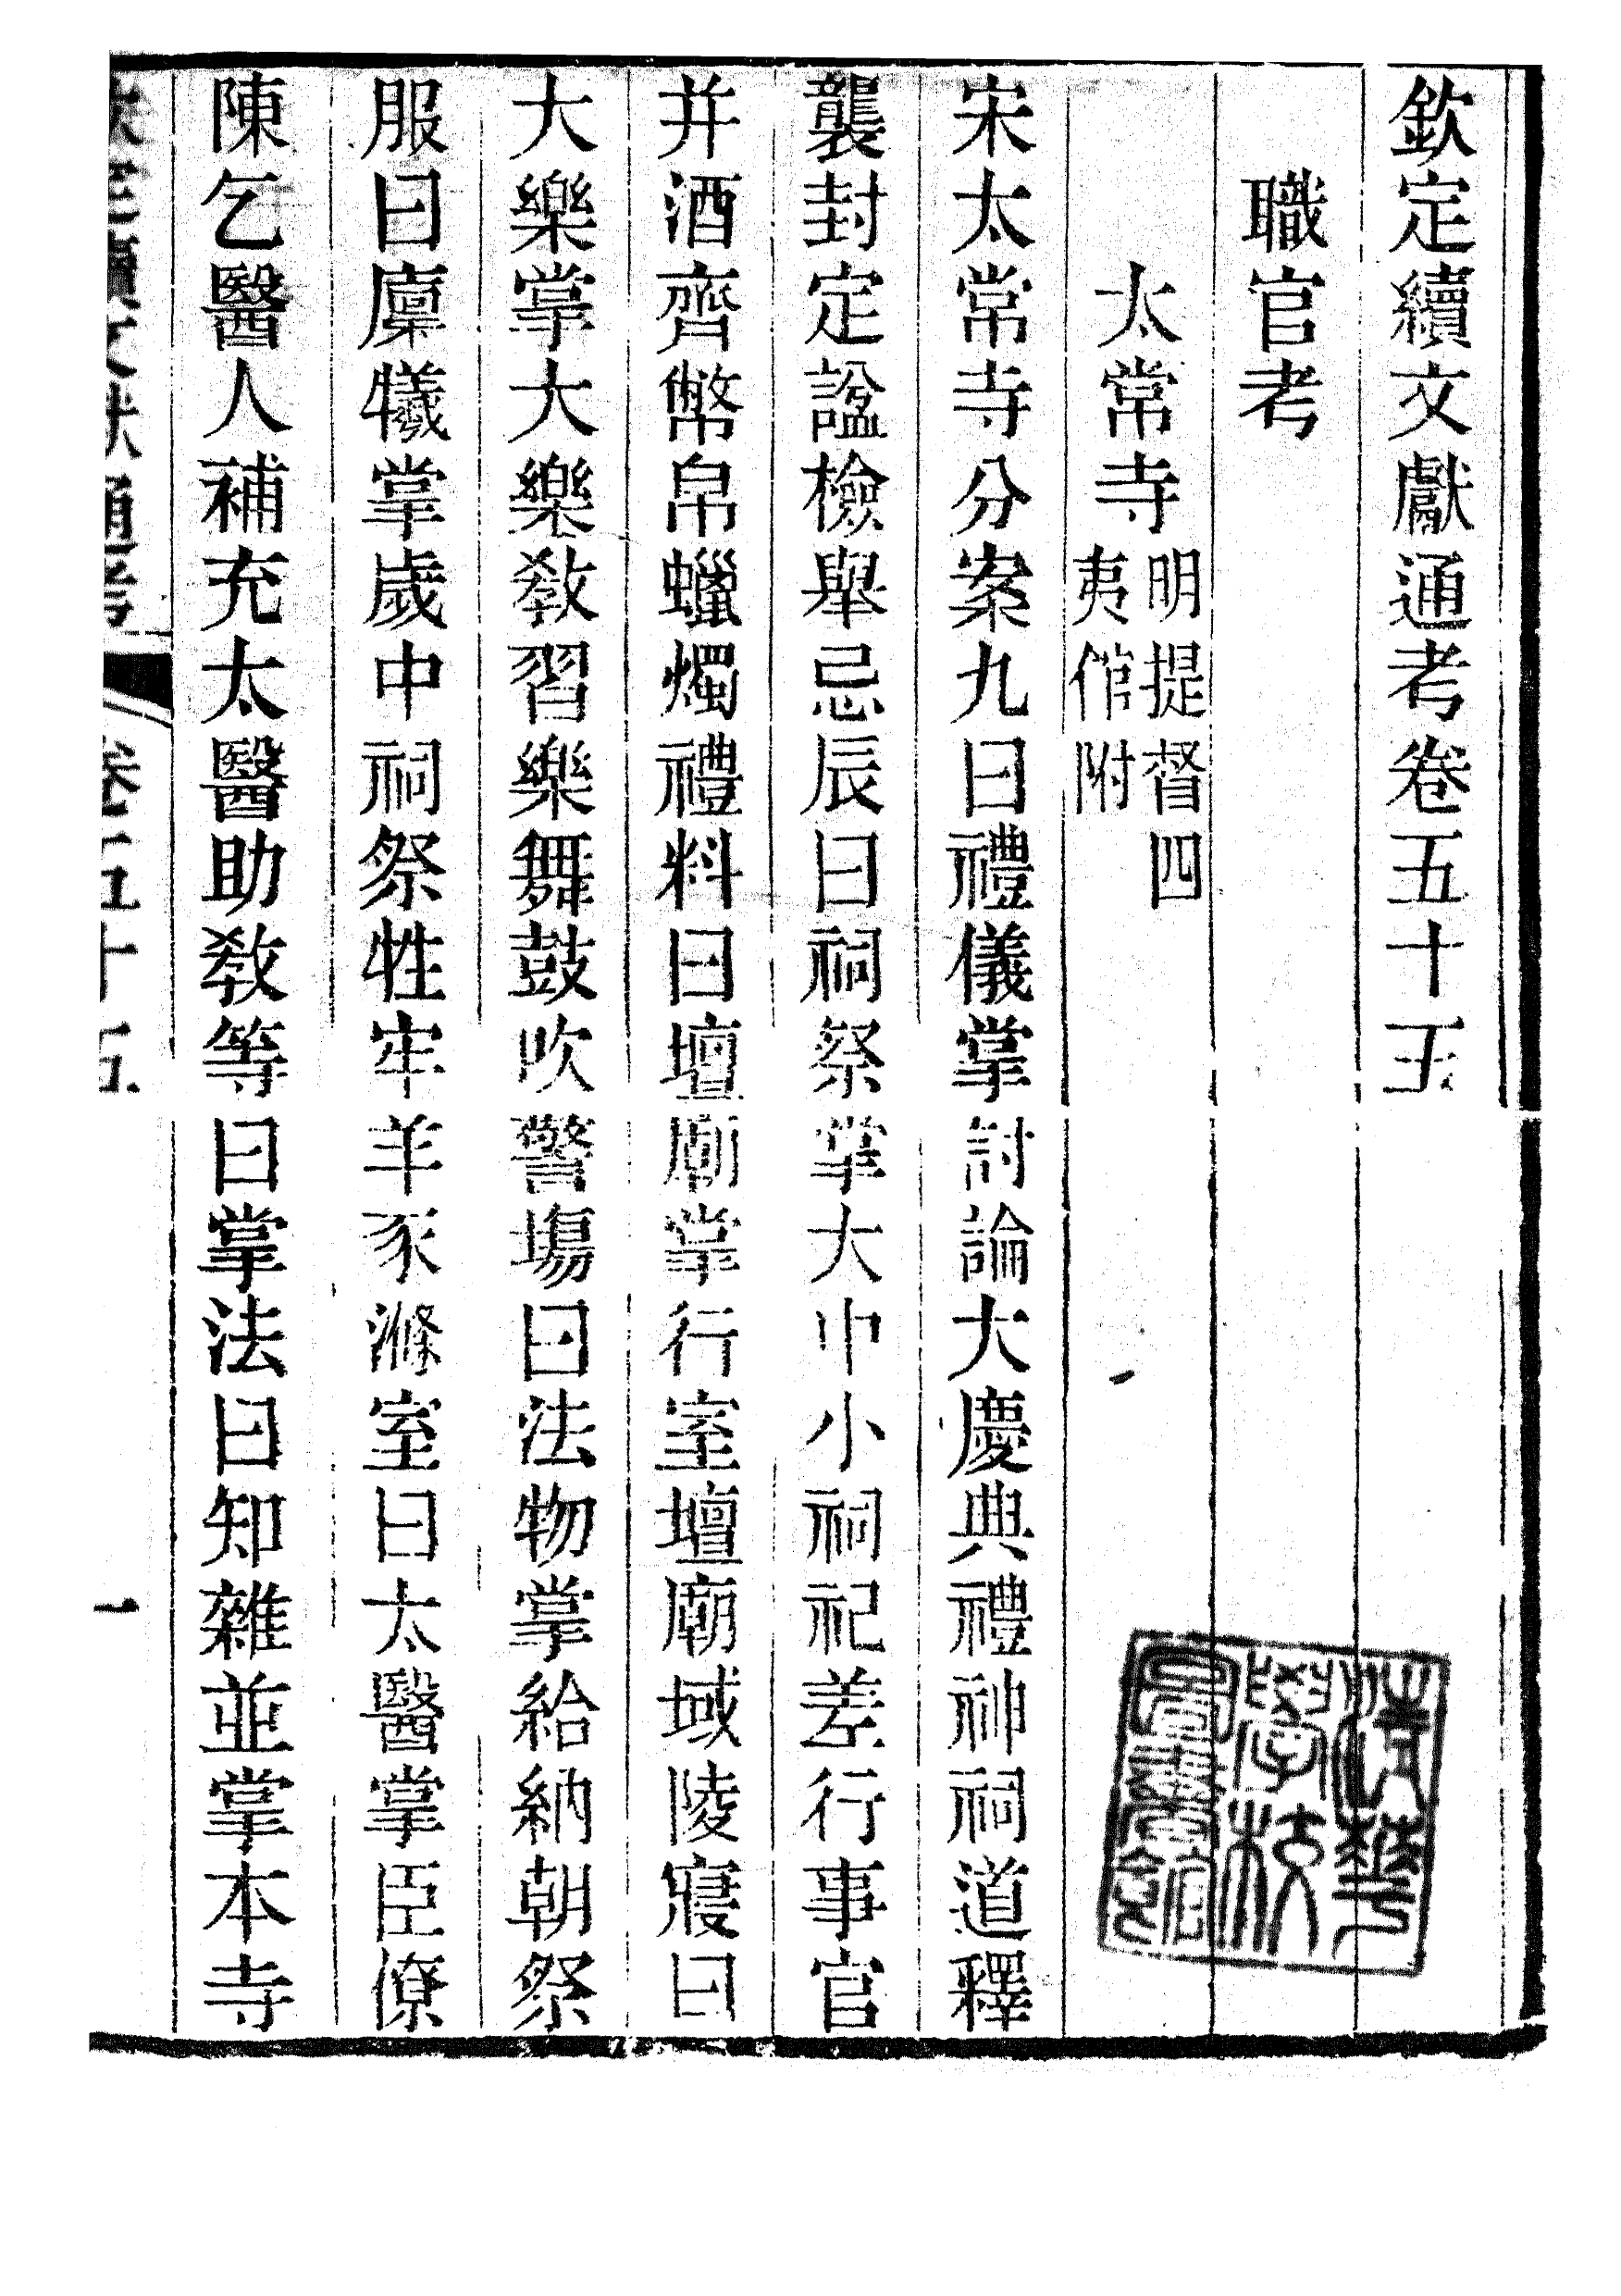 欽定續文獻通考卷五十五
職官考
太常寺明提督四夷館附
宋太常寺分案九曰禮儀掌討論大慶典禮神祠道釋
襲封定諡檢舉忌辰曰祠祭掌大中小祠祀差行事官
并酒齊幣帛蠟燭禮料曰壇廟掌行室壇廟域陵寢曰
大樂掌大樂敎習樂舞鼓吹警塲曰法物掌給納朝祭
服曰廩犧掌歲中祠祭牲牢羊豕滌室曰太醫掌臣僚
陳乞醫人補充太醫助敎等曰掌法曰知雜並掌本寺
欽定續文獻通考
卷五十五
一
清華學校圖書館